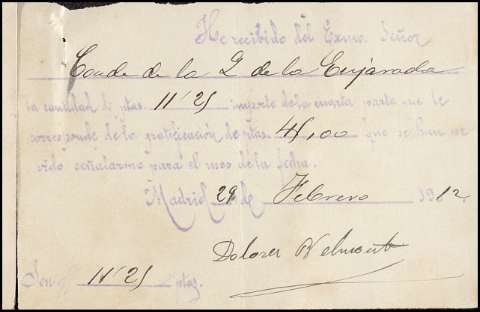 He recibido del Exmo. Señor
Conde de la Q de la Enjarada
la cantidad de ptas. 11'25 importe de la cuarta parte que le
corresponde de la gratificación de ptas. 45,00 que se han ser
vido señalarme para el mes de la fecha.
Madrid 29 de Febrero 1912.
Dolores Belmonte
Son 11'25 ptas.